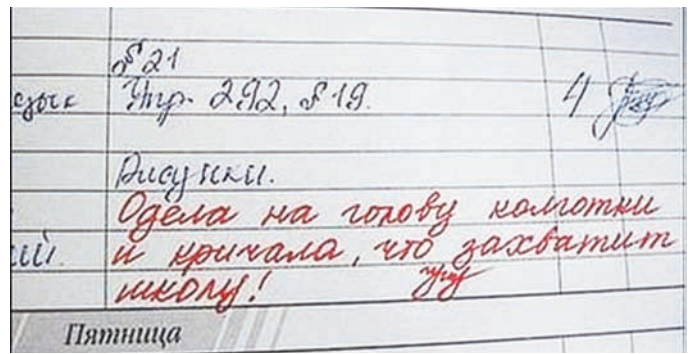 § 21
язык Упр. 292, § 19. 4
Рисунки.
Одела на голову колготки
ий. и кричала, что захватит
школу!
Пятница